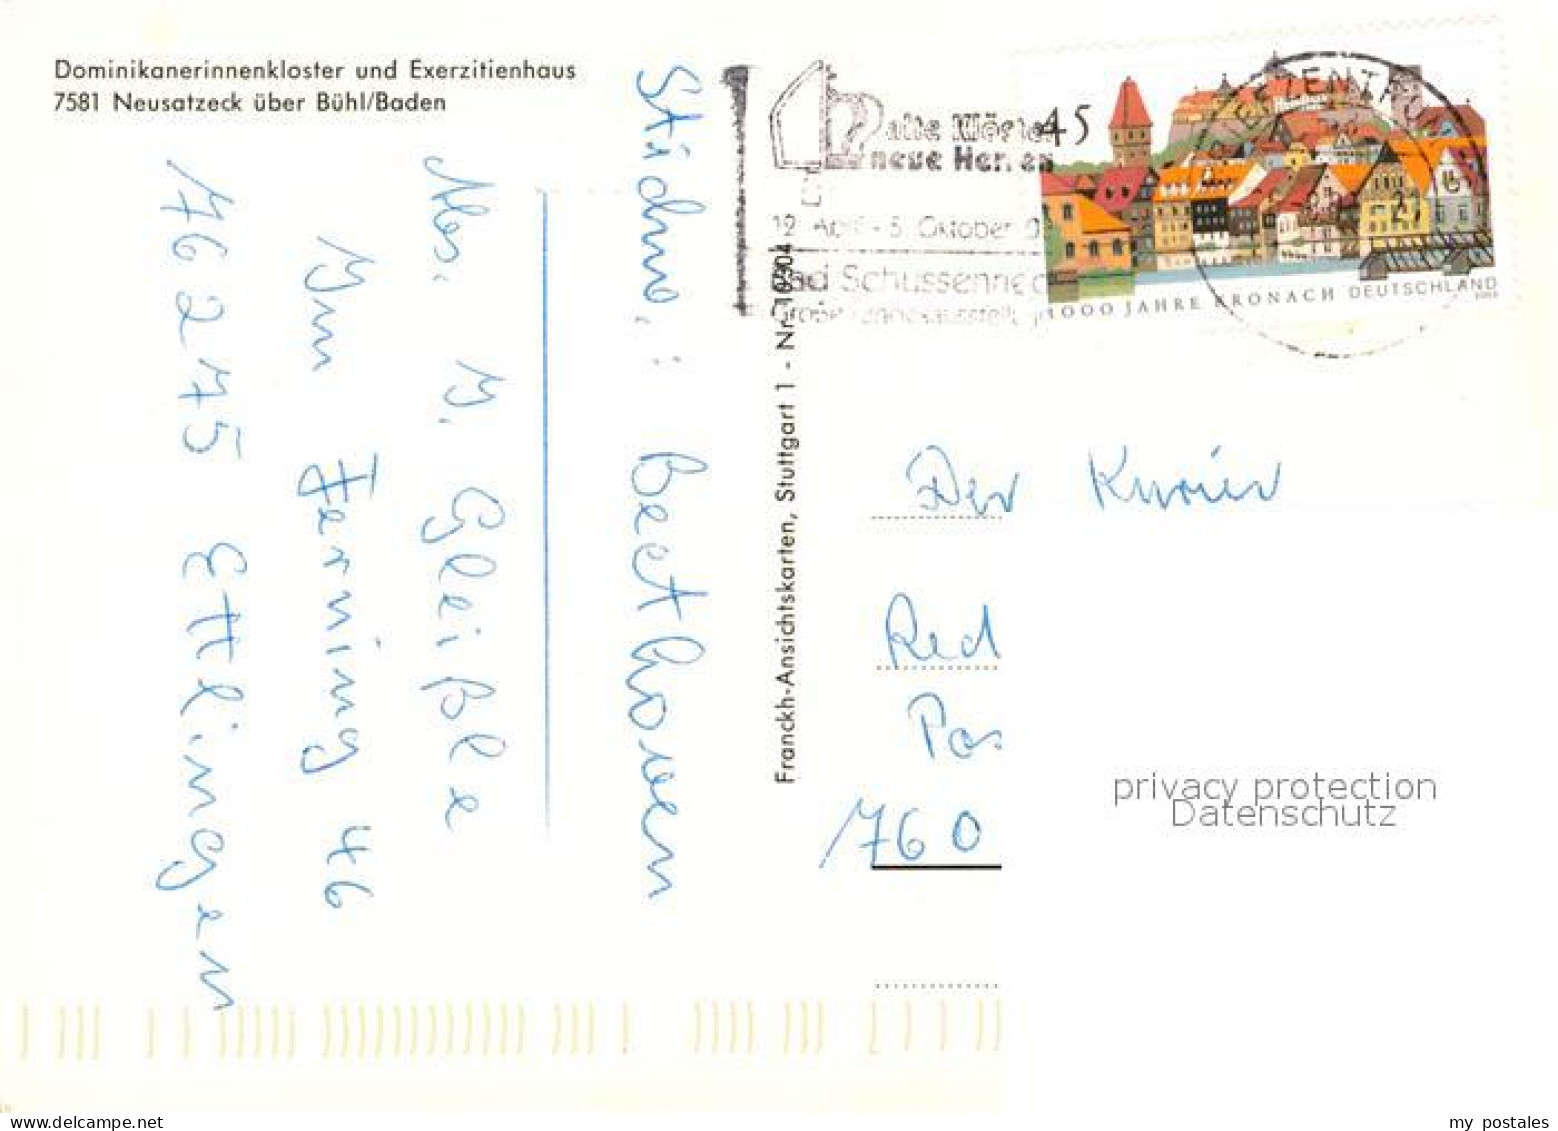 Dominikanerinnenkloster und Exerzitienhaus
7581 Neusatzeck über Bühl/Baden
Stichw.: Beethoven
Abs. M. Gleißle
Im Ferning 46
76275 Ettlingen
Franckh-Ansichtskarten, Stuttgart 1 - Nr. 10904
alte Klöster
neue Herren
12. April - 5. Oktober 0
Bad Schussenried
Große Landesausstellung
BRIEFZENTRUM
21
45
1000 JAHRE KRONACH DEUTSCHLAND
2003
Der Kurier
Red
Pos
760
privacy protection
Datenschutz
my postales